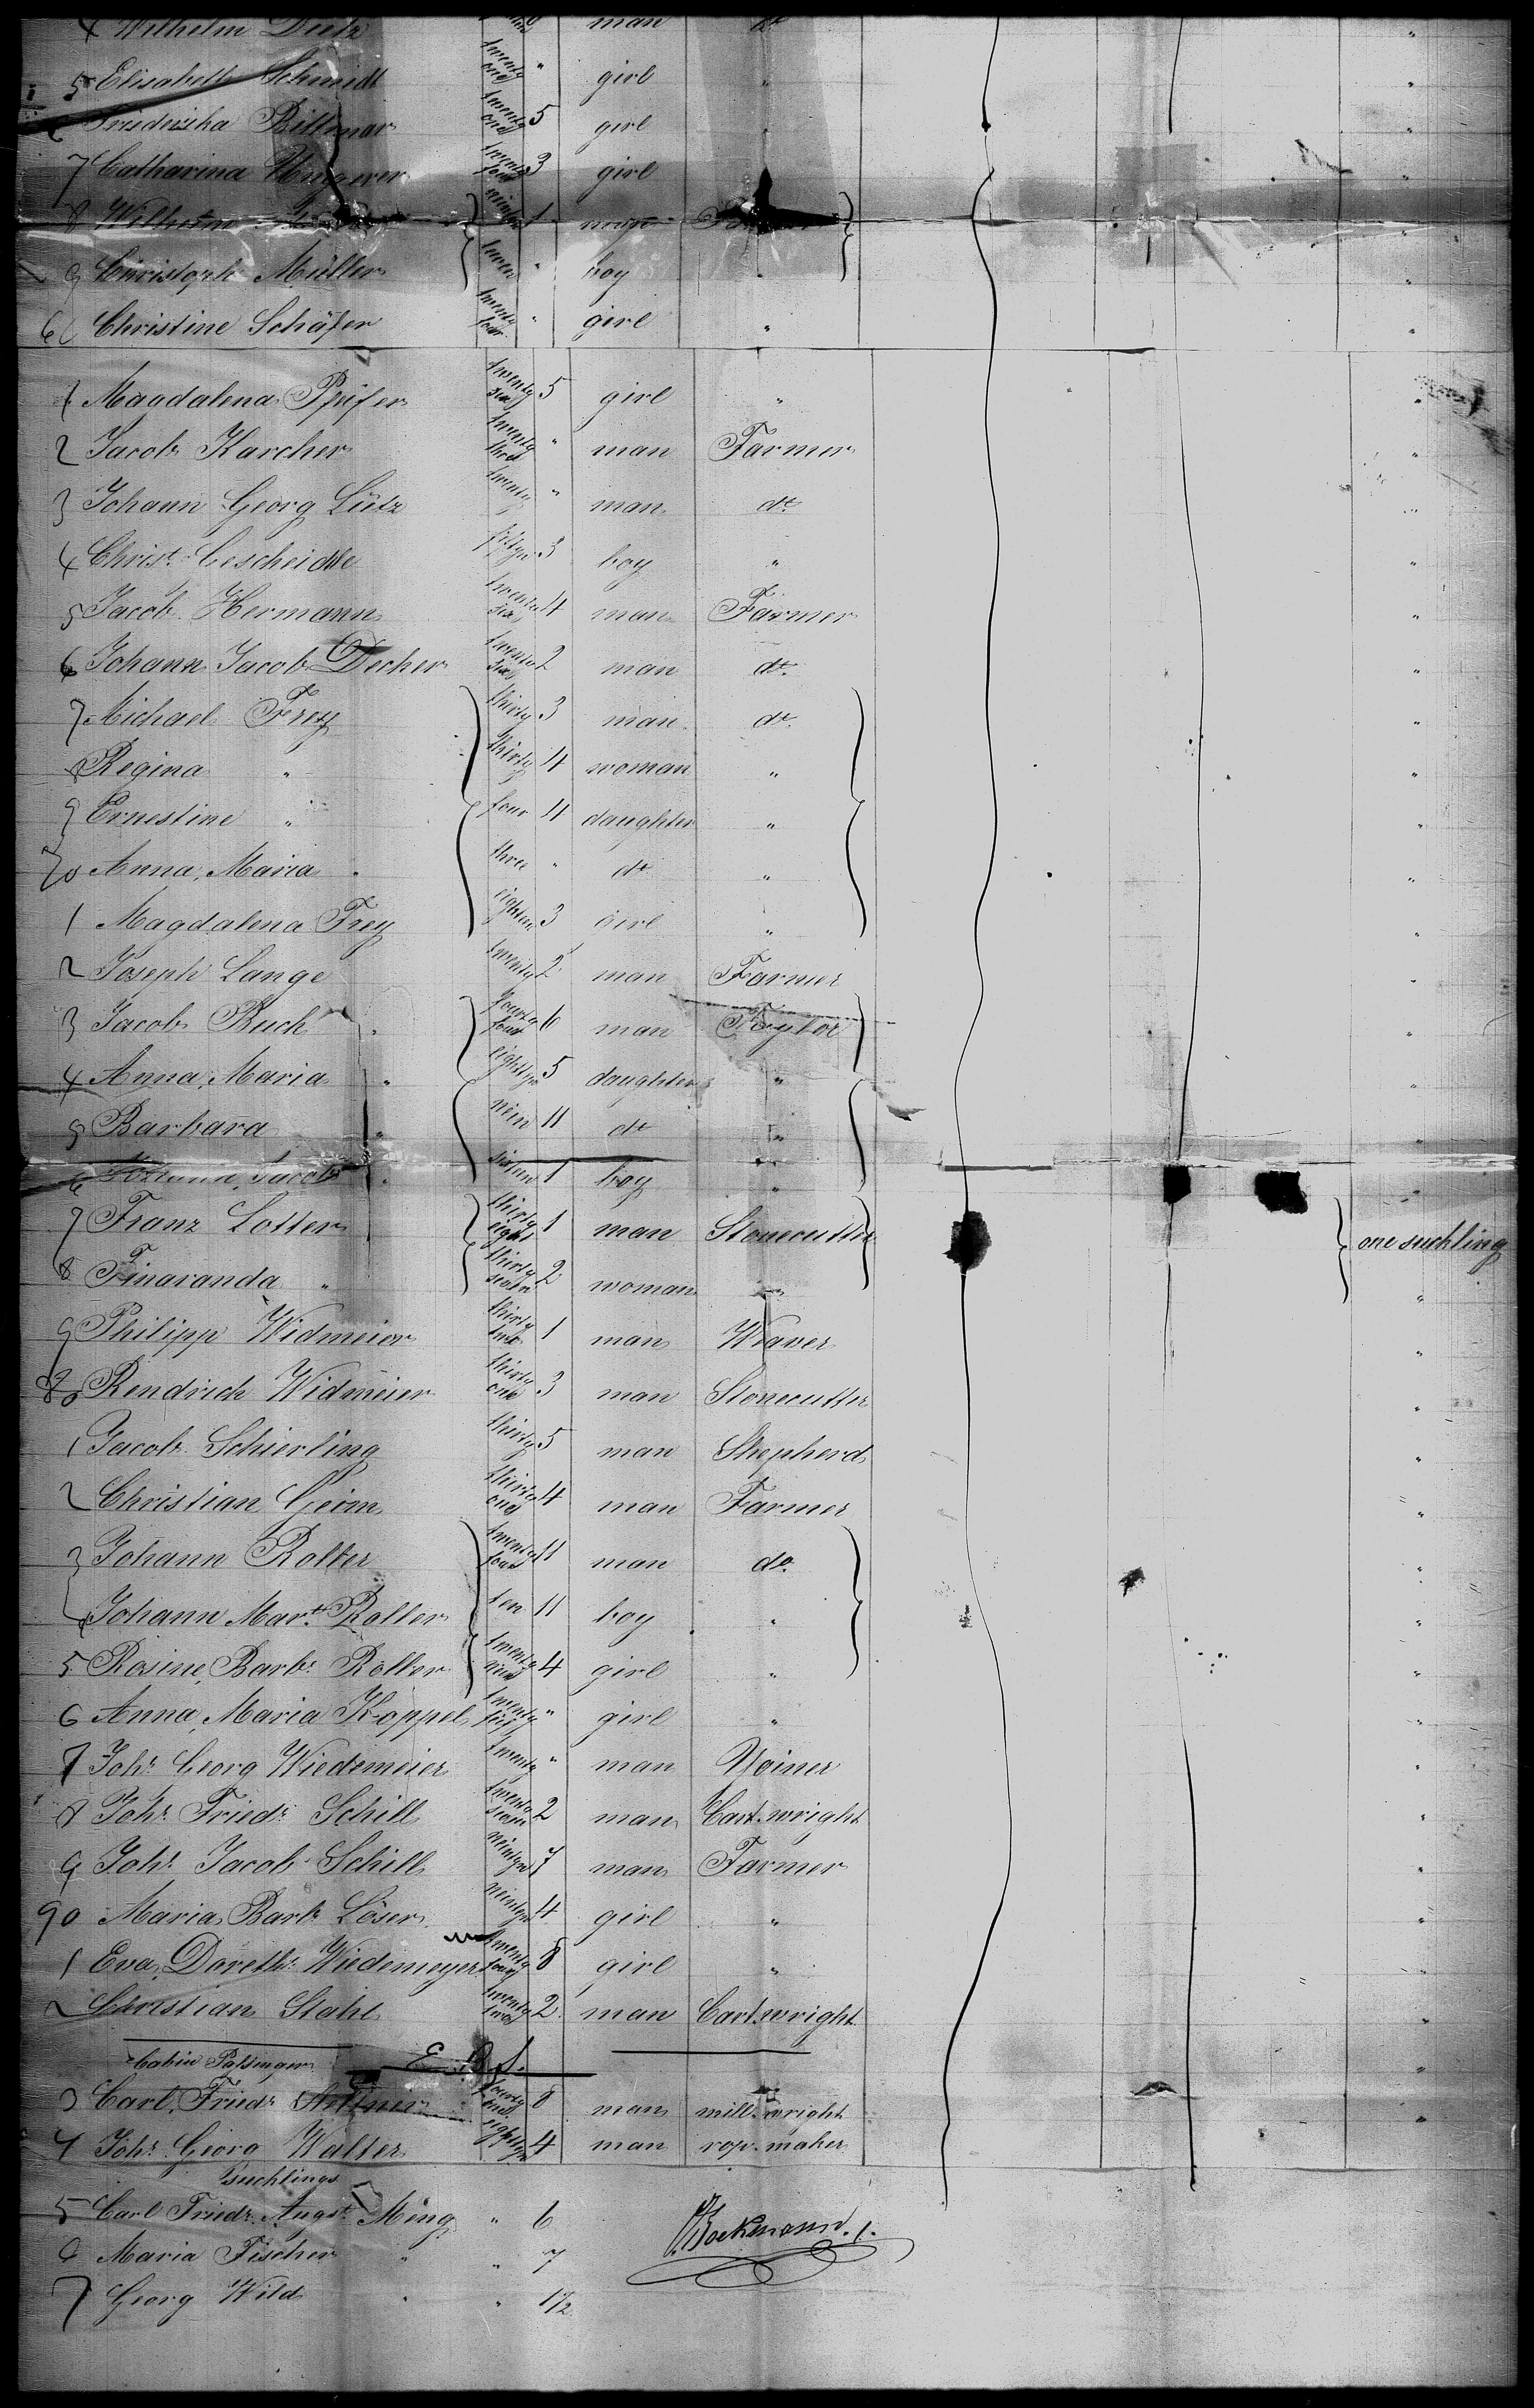 4 Wilhelm Dietz man dt
5 Elisabeth Schmidt twenty one " girl "
6 Friedericka Bittmar twenty one 5 girl
7 Catharina twenty four 3 girl
8 Wilhelm 1 man
9 Christoph Müller twelve " boy "
60 Christine Schäfer twenty four " girl "
1 Magdalena Pfeifer twenty six 5 girl "
2 Jacob Karcher twenty three " man Farmer
3 Johann Georg Lutz twenty " man dt
4 Christ. Gescheidle fifteen 3 boy "
5 Jacob Hermann twenty six 4 man Farmer
6 Johann Jacob Decher twenty six 2 man dt
7 Michael Frey thirty 3 man dt
8 Regina " thirty 4 woman "
9 Ernestine " four 4 daughter "
70 Anna Maria " three " dt "
1 Magdalena Frey eighteen 3 girl "
2 Joseph Lange twenty 2 man Farmer
3 Jacob Buch fourty four 6 man Taylor
4 Anna Maria " eighteen 5 daughter "
5 Barbara " nein 11 dt "
6 Johann Jacob " sixteen 1 boy "
7 Franz Lotter thirty eight 1 man Stonecutter one suckling
8 Finaranda " thirty seven 2 woman "
9 Philipp Widmeier thirty two 1 man Weaver
80 Rendrich Widmeier thirty one 3 man Stonecutter
1 Jacob Schierling thirty 5 man Shepherd
2 Christian Geim thirty one 4 man Farmer
3 Johann Rolter twenty four 11 man do
4 Johann Mart. Rolter ten 11 boy "
5 Rosine Barb. Rolter twenty nein 4 girl "
6 Anna Maria Koppel twenty five " girl "
7 Joh. Georg Wiedemeier twenty " man Joiner
8 Joh. Friedr. Schill twenty seven 2 man Cartwright
9 Joh. Jacob Schill neinteen 7 man Farmer
90 Maria Barb. Löser neinteen 4 girl "
1 Eva Doreth. Wiedemeyer twenty four 8 girl "
2 Christian Stahl twenty two 2 man Cartwright
Cabin Passengers
3 Carl Friedr. fourty one 8 man millwright
4 Joh. Georg Walter eighteen 4 man ropemaker
Sucklings
5 Carl Friedr. Augst. Ming " 6
6 Maria Fischer " " 7
Bockmann.
7 Georg Wild " " 1½